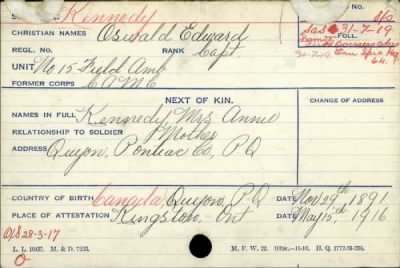 Kennedy
CHRISTIAN NAMES Oswald Edward
REGL. NO. RANK Capt. FOLL.
SOS 31-7-19
UNIT No 15 Field Amb
30-7-19
FORMER CORPS C.A.M.C.
NEXT OF KIN. CHANGE OF ADDRESS
NAMES IN FULL Kennedy Mrs Annie
RELATIONSHIP TO SOLDIER Mother
ADDRESS Quyon, Pontiac Co, P.Q
COUNTRY OF BIRTH Canada, Quyon, P.Q DATE Nov 29th 1891
PLACE OF ATTESTATION Kingston, Ont DATE May 15th, 1916
O/S 28-3-17
M. F. W. 22.